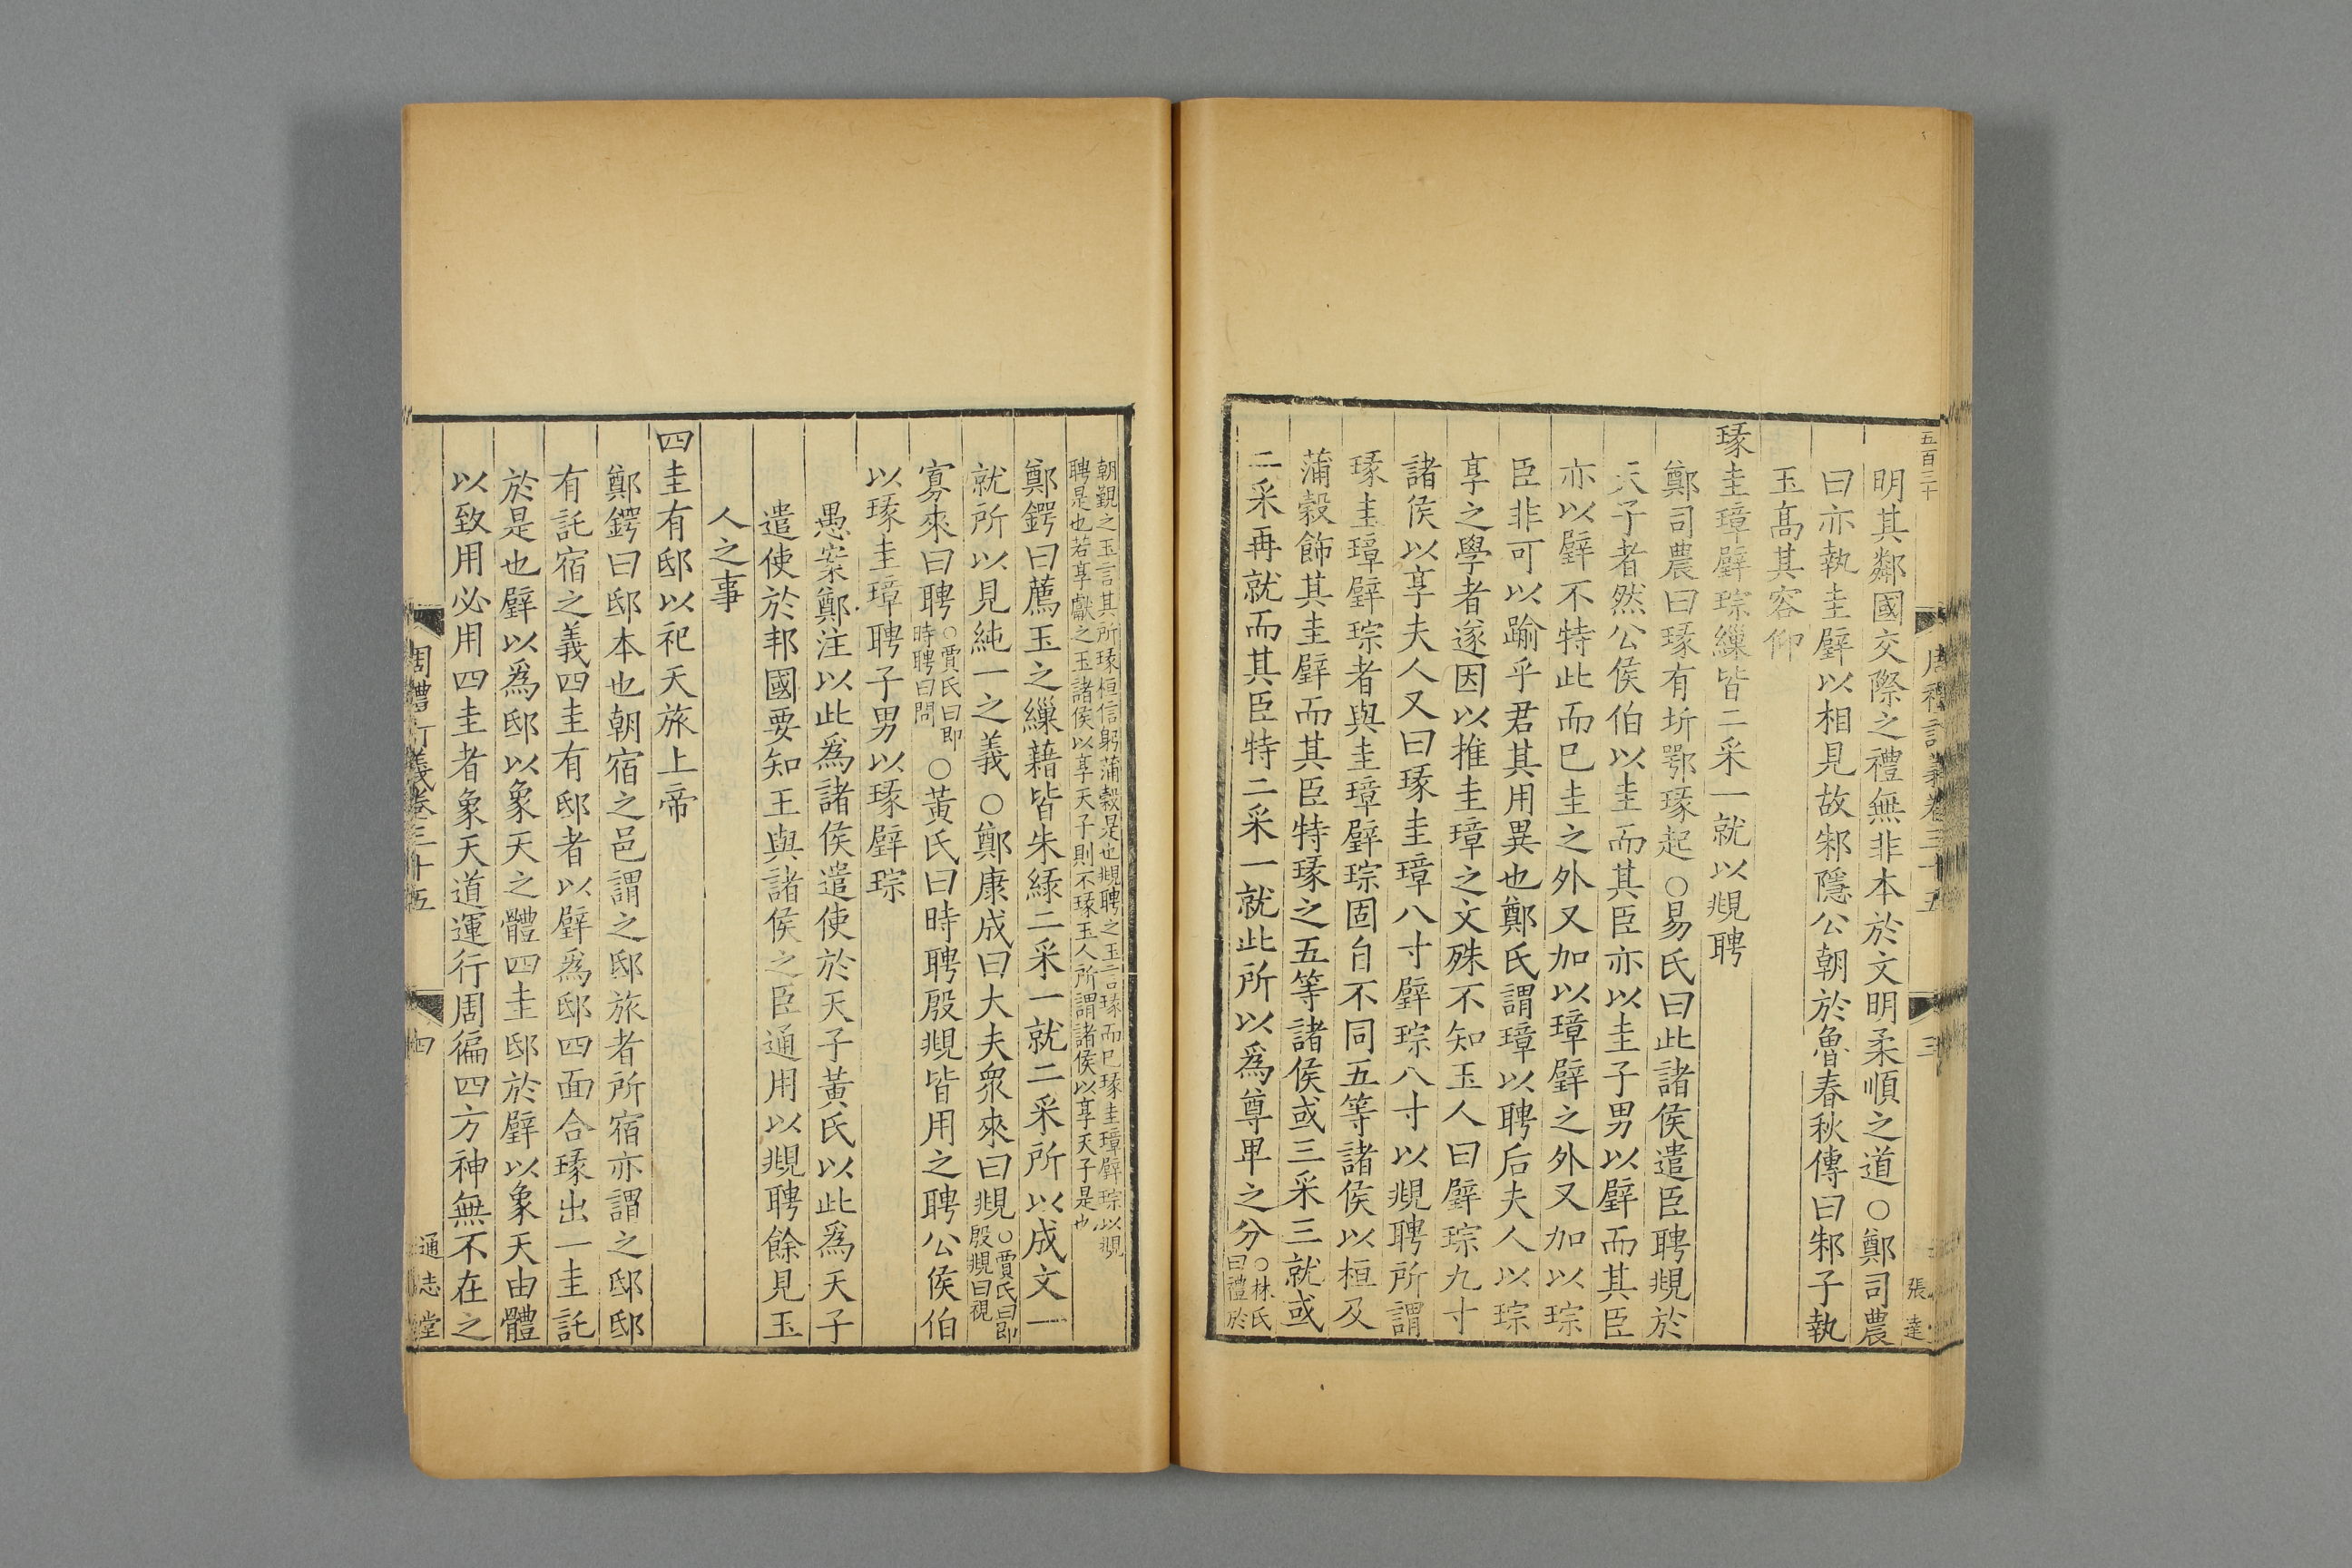 五百二十
周禮訂義卷三十五
三
張達
明其鄰國交際之禮無非本於文明柔順之道○鄭司農
曰亦執圭璧以相見故邾隱公朝於魯春秋傳曰邾子執
玉髙其容仰
瑑圭璋璧琮繅皆二采一就以覜聘
鄭司農曰瑑有圻鄂瑑起○易氏曰此諸侯遣臣聘覜於
天子者然公侯伯以圭而其臣亦以圭子男以璧而其臣
亦以璧不特此而已圭之外又加以璋璧之外又加以琮
臣非可以踰乎君其用異也鄭氏謂璋以聘后夫人以琮
享之學者遂因以推圭璋之文殊不知玉人曰璧琮九寸
諸侯以享夫人又曰瑑圭璋八寸璧琮八寸以覜聘所謂
瑑圭璋璧琮者與圭璋璧琮固自不同五等諸侯以桓及
蒲穀飾其圭璧而其臣特瑑之五等諸侯或三采三就或
二采再就而其臣特二采一就此所以爲尊卑之分○林氏
曰禮於
朝覲之玉言其所瑑桓信躬蒲穀是也覜聘之玉言瑑而已瑑圭璋璧琮以覜
聘是也若享獻之玉諸侯以享天子則不瑑玉人所謂諸侯以享天子是也
鄭鍔曰薦玉之繅藉皆朱緑二采一就二采所以成文一
就所以見純一之義○鄭康成曰大夫衆來曰覜○賈氏曰即
殷覜曰視
寡來曰聘○賈氏曰即
時聘曰問
○黃氏曰時聘殷覜皆用之聘公侯伯
以瑑圭璋聘子男以瑑璧琮
愚案鄭注以此爲諸侯遣使於天子黃氏以此爲天子
遣使於邦國要知王與諸侯之臣通用以覜聘餘見玉
人之事
四圭有邸以祀天旅上帝
鄭鍔曰邸本也朝宿之邑謂之邸旅者所宿亦謂之邸邸
有託宿之義四圭有邸者以璧爲邸四面合瑑出一圭託
於是也璧以爲邸以象天之體四圭邸於璧以象天由體
以致用必用四圭者象天道運行周徧四方神無不在之
周禮訂義卷三十五
四
通志堂